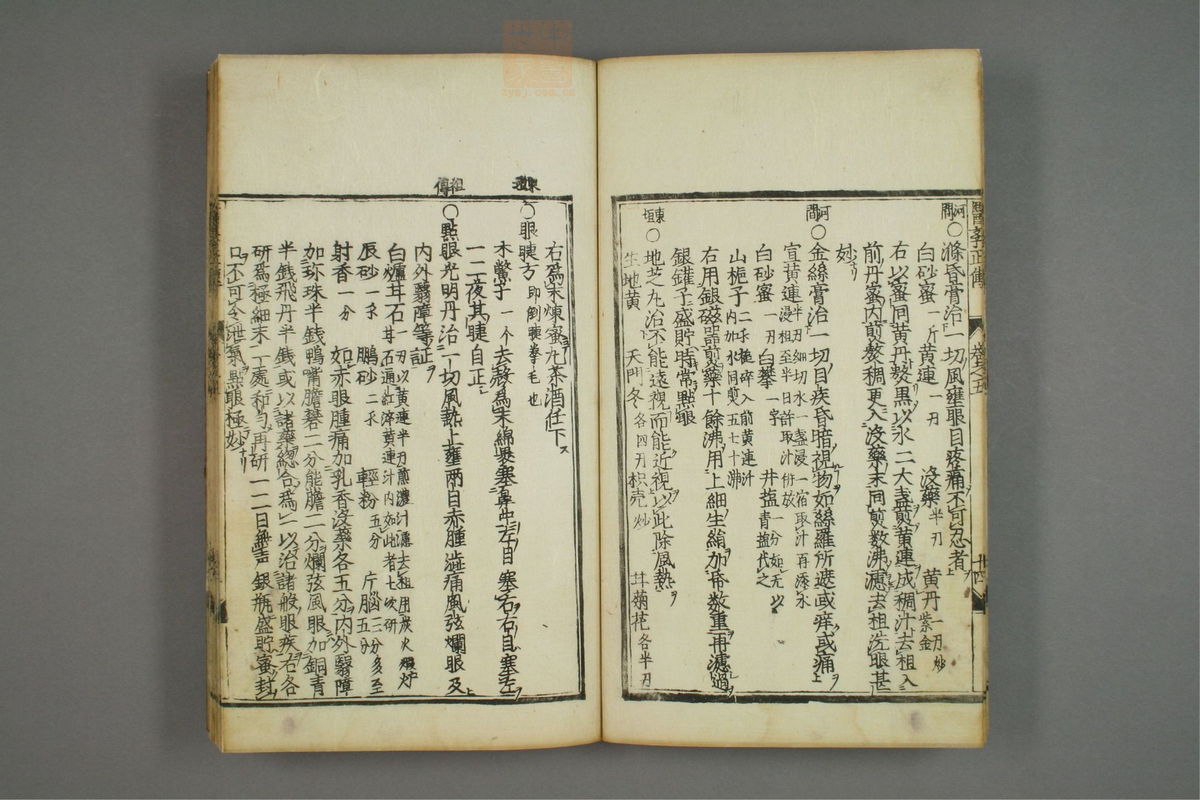 醫學正傳 卷之五
河間
○滌昏膏治一切風壅眼目疼痛不可忍者
白砂蜜一斤 黃連一刃 沒藥半刃 黃丹一刃炒紫金
右以蜜同黃丹熬黑以水二大盞煎黃連成稠汁去柤入
前丹蜜內煎熬稠更入沒藥末同煎数沸濾去柤洗眼甚
妙
河間
○金絲膏治一切目疾昏暗視物如絲羅所遮或痒或痛
宜黃連半刃細切水一盞浸一宿取汁再添水浸柤至半日許取汁併放
白砂蜜一刃 白礬一字 井塩一分如无以青塩代之
山梔子二禾槌碎入前黃連汁內加水同煎五七十沸
右用銀磁器煎藥十餘沸用上細生絹加帋数重再濾過
銀罐子盛貯時常點眼
東垣
○地芝丸治不能遠視而能近視以此除風熱
生地黃 天門冬各四刃 枳壳炒 甘菊花各半刃
右爲末煉蜜丸茶酒任下
東垣
○眼睫方即倒睫拳毛也
木鱉子一个去殼爲末綿裹塞鼻中左目塞右右目塞左
一二夜其睫自正
祖傳
○點眼光明丹治一切風熱上壅兩目赤腫澁痛風弦爛眼及
內外翳障等証
白爐甘石一刃以黃連半刃煎濃汁濾去柤用炭火煅炉甘石通紅淬黃連汁內如此者七次研
辰砂一禾 鵬砂二禾 輕粉五分 片腦三分多至五分
射香一分 如赤眼腫痛加乳香沒藥各五分內外翳障
加珎珠半錢鴨嘴膽礬二分熊膽二分爛弦風眼加銅青
半錢飛丹半錢或以諸藥總合爲一以治諸般眼疾右各
研爲極細末一處和勻再研一二日無聲銀瓶盛貯蜜封
口不可令泄氣點眼極妙